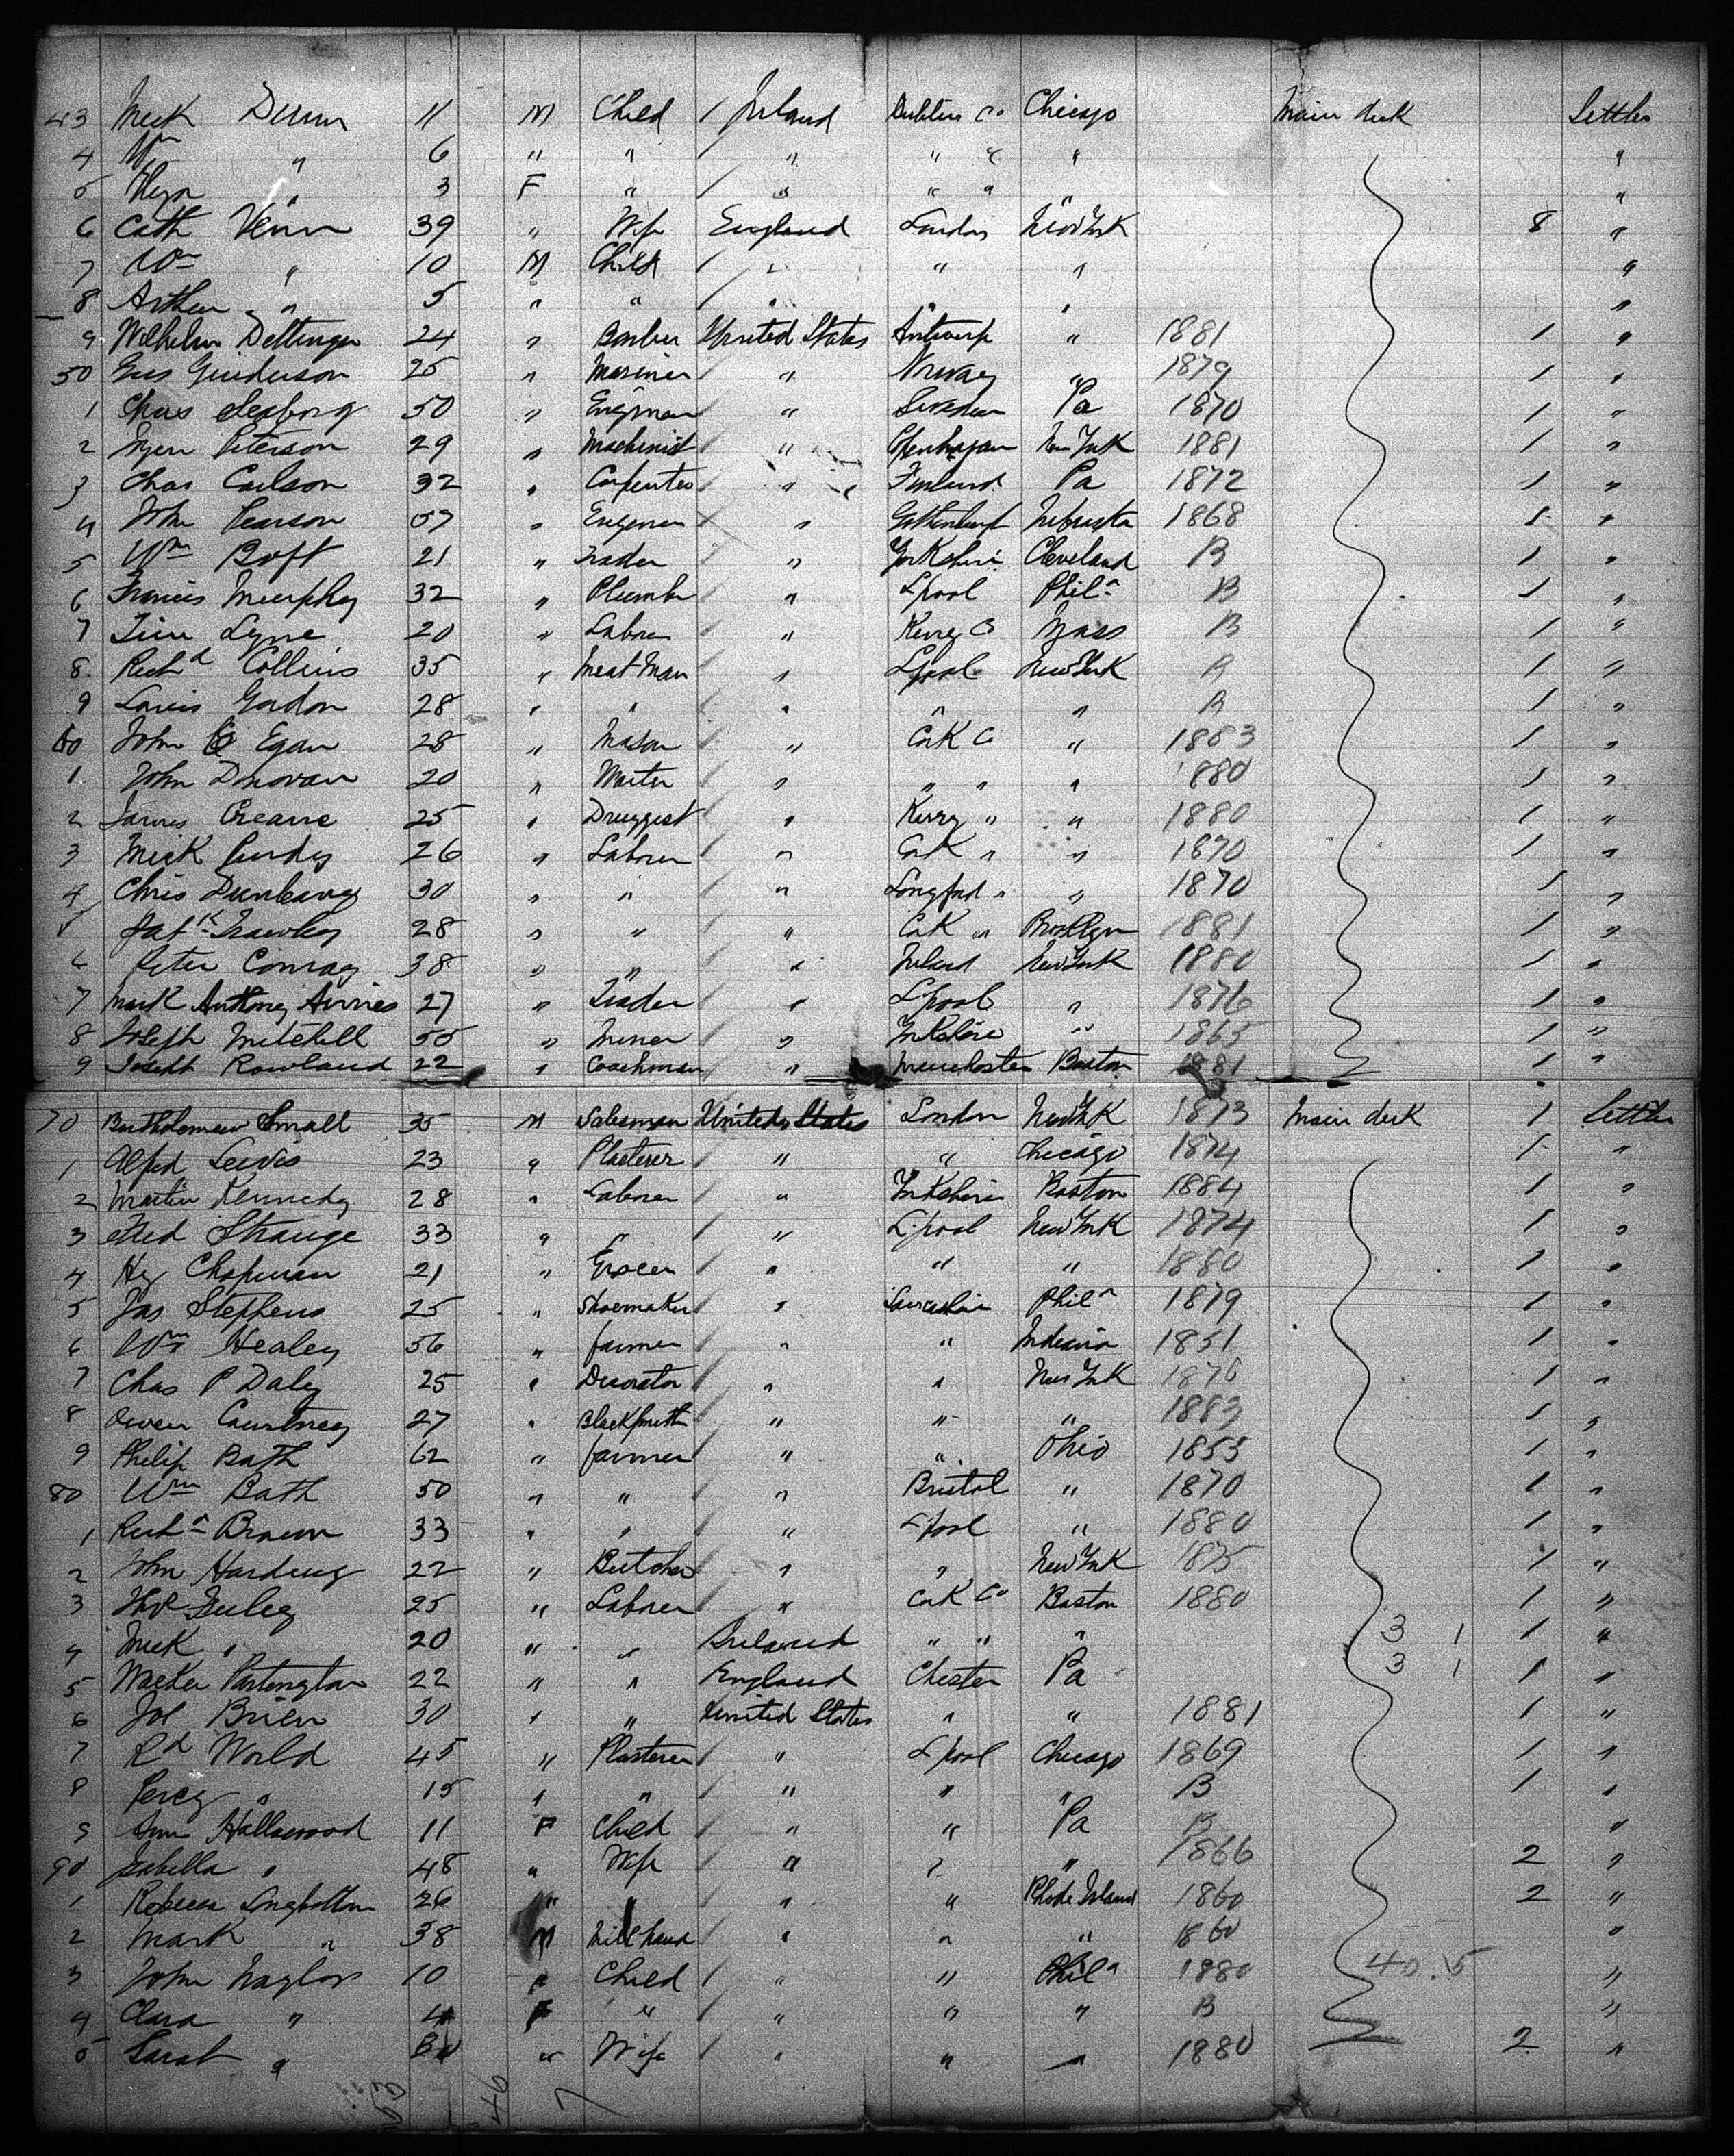 43 Mick Dunn 11 M Child Ireland Dublin Co Chicago Main deck Settler
4 Wm " 6 " " " " " " "
5 3 F " " " " " "
6 Cath Venn 39 " Wife England London New York 8 "
7 Wm " 10 M Child " " " "
8 Arthur " 5 " " " " " "
9 Wilhelm Dettinger 24 " Barber United States Antwerp " 1881 1 "
50 Gus Gunderson 25 " Mariner " Norway " 1879 1 "
1 Chas Seaborg 50 " Engineer " Sweden Pa 1870 1 "
2 Peterson 29 " Machinist " Copenhagen New York 1881 1 "
3 Chas Carlson 32 " Carpenter " Finland Pa 1872 1 "
4 John Pearson 57 " Engineer " Gothenburg Nebraska 1868 1 "
5 Wm Boft 21 " Trader " Yorkshire Cleveland B 1 "
6 Francis Murphy 32 " Plumber " Lpool Phila B 1 "
7 Tim Lyne 20 " Laborer " Kerry Co Mass B 1 "
8 Richd Collins 35 " Meat Man " Lpool New York B 1 "
9 Louis Gordon 28 " " " " " B 1 "
60 John Egan 28 " Mason " Cork Co " 1883 1 "
1 John Donovan 20 " Waiter " " " " 1880 1 "
2 James Creane 25 " Druggist " Kerry " " 1880 1 "
3 Mick 26 " Laborer " Cork " " 1870 1 "
4 Chris 30 " " " Longford " " 1870 1 "
5 Patk 28 " " " Cork " Brooklyn 1881 1 "
6 Peter Conray 38 " " " Ireland New York 1880 1 "
7 Mark Anthony 27 " Trader " Lpool " 1876 1 "
8 Joseph Mitchell 55 " Miner " Yorkshire " 1865 1 "
9 Joseph Rowland 22 " Coachman " Manchester Boston 1881 1 "
70 Bartholomew Small 35 M Salesman United States London New York 1873 Main deck 1 Settler
1 Alfed Lewis 23 " Plasterer " " Chicago 1874 1 "
2 Martin Kennedy 28 " Laborer " Yorkshire Boston 1884 1 "
3 Fred Strange 33 " " " L'pool New York 1874 1 "
4 Hy Chapman 21 " Grocer " " " 1880 1 "
5 Jas Stephens 25 " Shoemaker " Lancashire Phila 1879 1 "
6 Wm Healey 56 " farmer " " Indiana 1851 1 "
7 Chas P Daley 25 " Decorator " " New York 1876 1 "
8 Owen Courtney 27 " Blacksmith " " " 1883 1 "
9 Philip Bath 62 " farmer " " Ohio 1855 1 "
80 Wm Bath 50 " " " Bristol " 1870 1 "
1 Richd Brown 33 " " " Lpool " 1880 1 "
2 John Harding 22 " Butcher " " New York 1875 1 "
3 25 " Laborer " Cork Co Boston 1880 1 "
4 Mick " 20 " " Ireland " " " 3 1 1 "
5 Walter Partington 22 " " England Chester Pa 3 1 1 "
6 Brien 30 " " United States " " 1881 1 "
7 Rd World 45 " Plasterer " Lpool Chicago 1869 1 "
8 Percy " 15 " " " " " B 1 "
9 Ann Hallowood 11 F Child " " Pa B "
90 Isabella " 48 " Wife " " " 1866 2 "
1 Rebecca Longbottom 26 " " " " Rhode Island 1860 2 "
2 Mark " 38 M Mill hand " " " 1860 "
3 John Naylor 10 " Child " " Phila 1880 40.5 "
4 Clara " 4 F " " " " B "
5 Sarah " " Wife " " " 1880 2 "